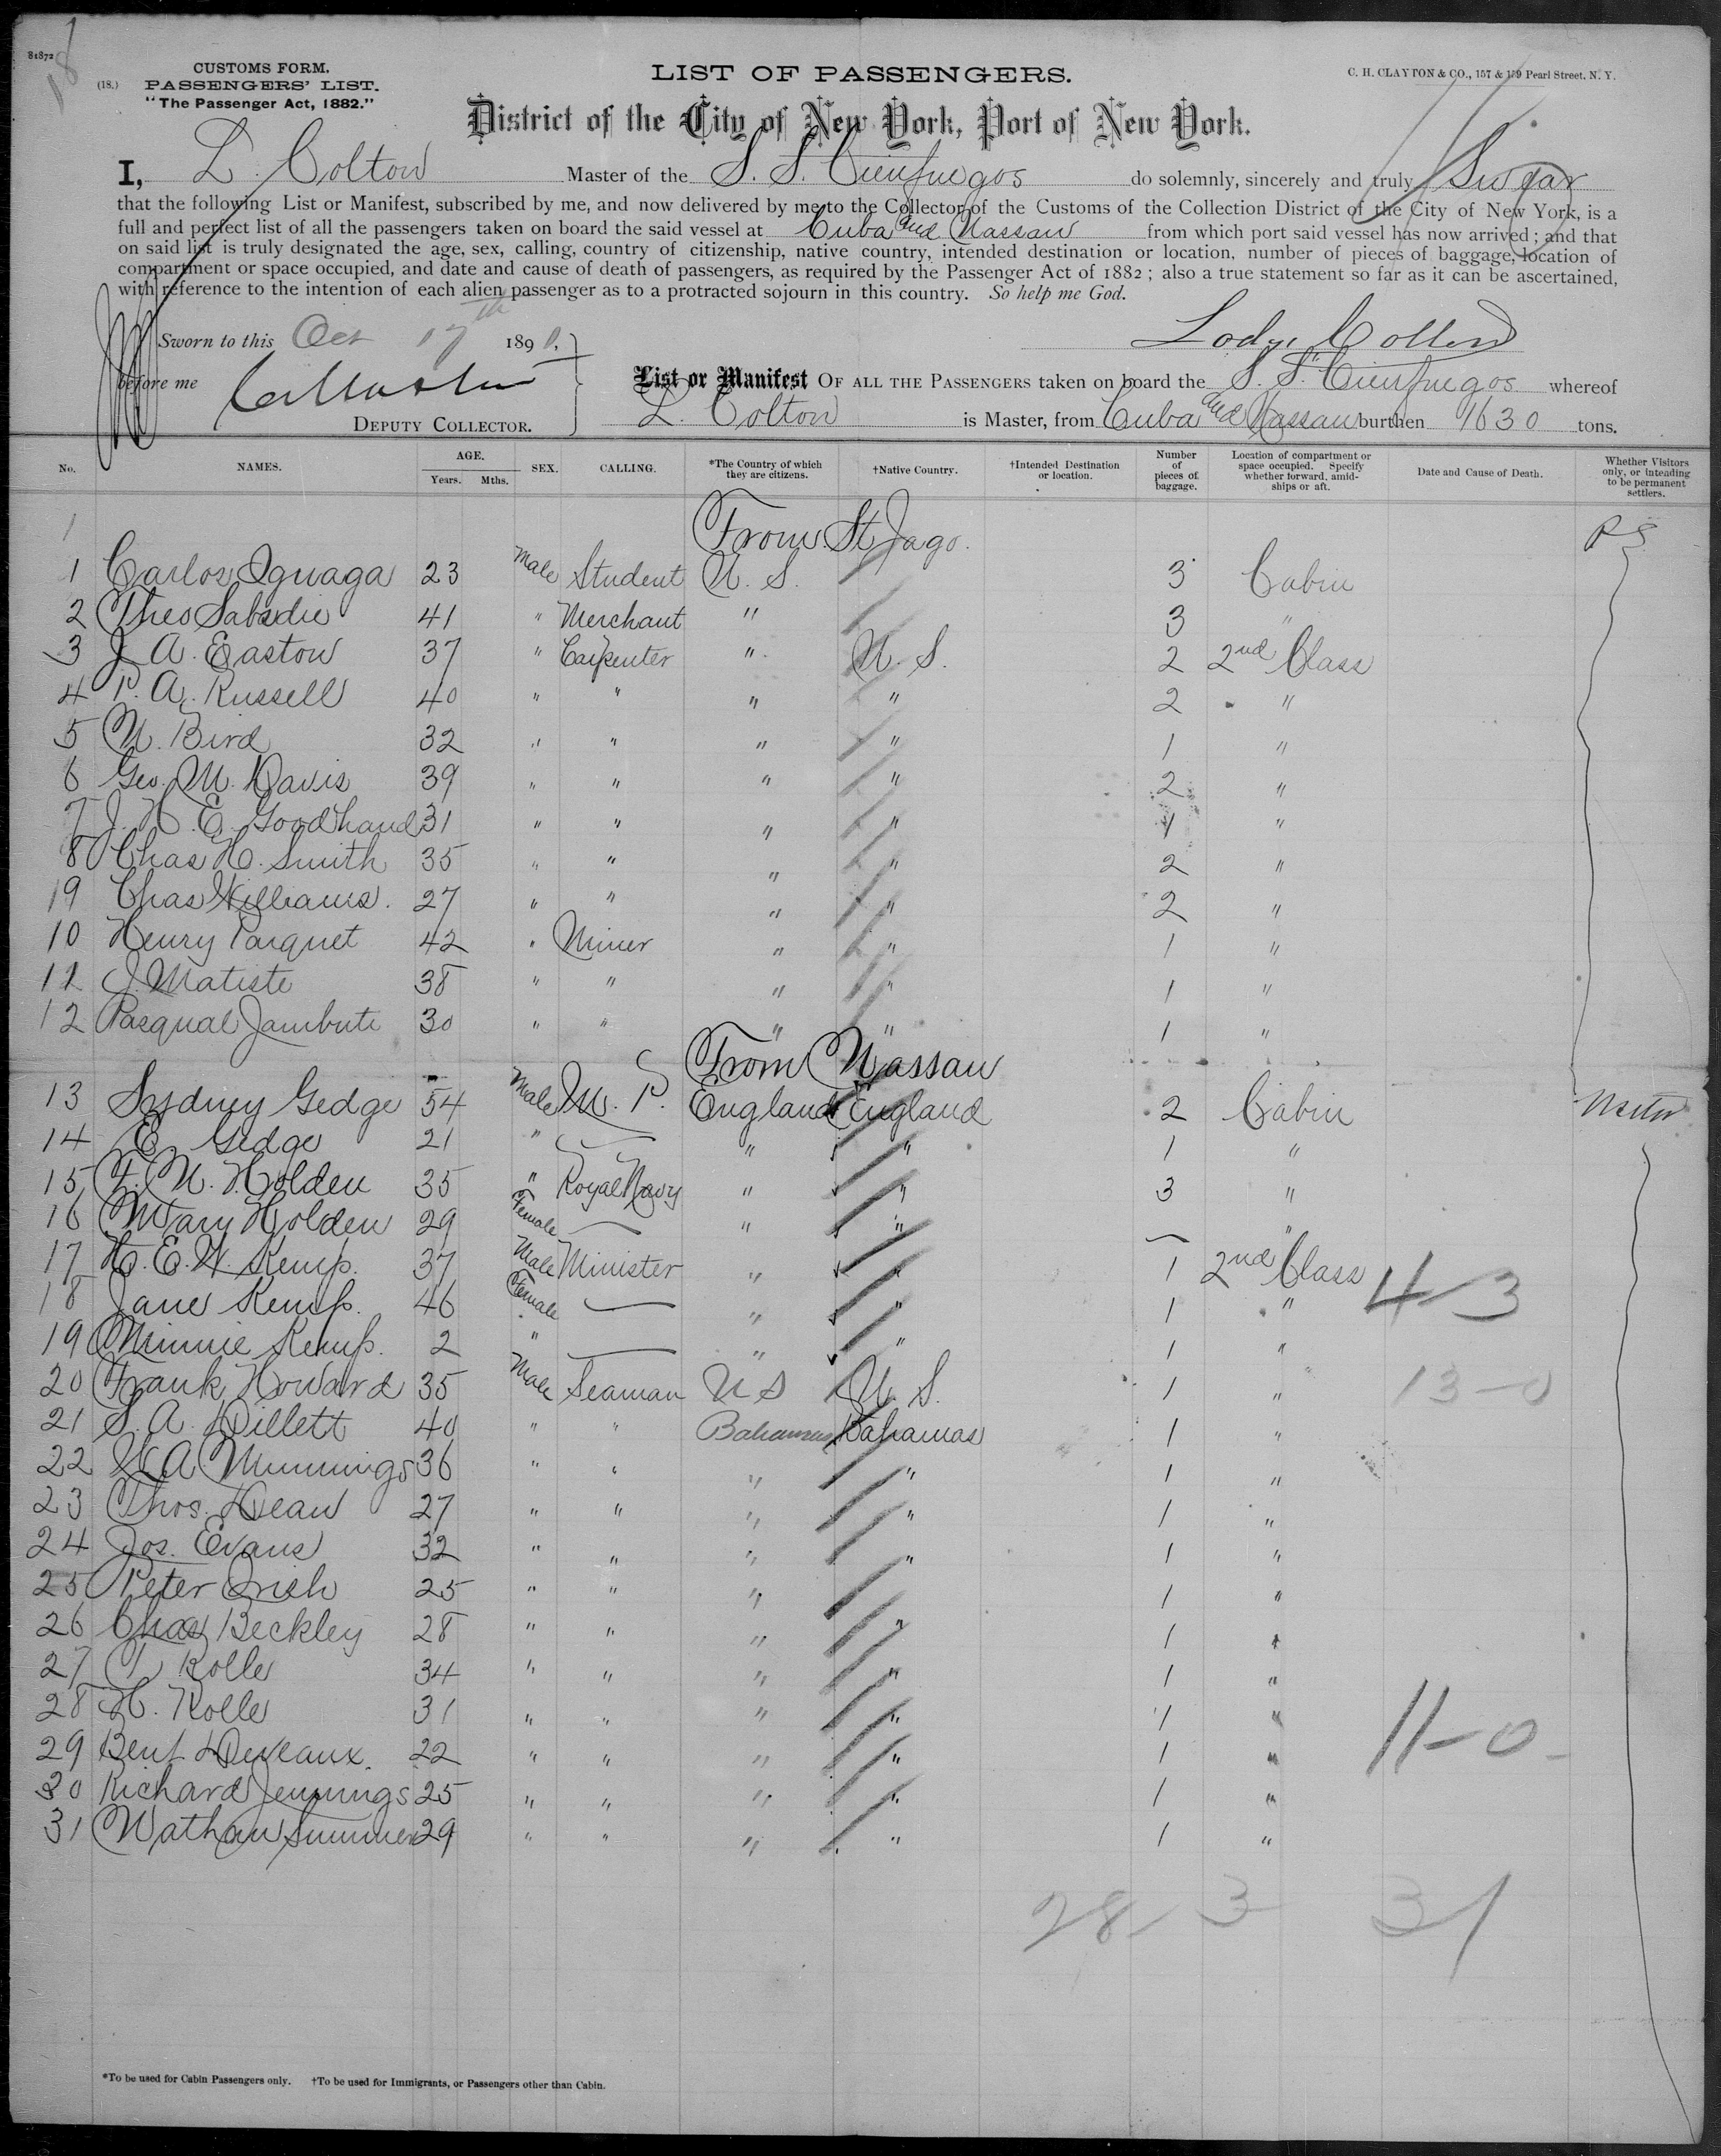 81872
18
CUSTOMS FORM.
(18.) PASSENGERS' LIST.
"The Passenger Act, 1882."
LIST OF PASSENGERS.
C. H. CLAYTON & CO., 157 & 159 Pearl Street, N. Y.
District of the City of New York, Port of New York.
I, L. Colton Master of the S. S. Cienfuegos do solemnly, sincerely and truly Swear
that the following List or Manifest, subscribed by me, and now delivered by me to the Collector of the Customs of the Collection District of the City of New York, is a
full and perfect list of all the passengers taken on board the said vessel at Cuba and Nassau from which port said vessel has now arrived; and that
on said list is truly designated the age, sex, calling, country of citizenship, native country, intended destination or location, number of pieces of baggage, location of
compartment or space occupied, and date and cause of death of passengers, as required by the Passenger Act of 1882; also a true statement so far as it can be ascertained,
with reference to the intention of each alien passenger as to a protracted sojourn in this country. So help me God.
Sworn to this Oct 17th 189
Colton
before me
DEPUTY COLLECTOR.
List or Manifest OF ALL THE PASSENGERS taken on board the S. S. Cienfuegos whereof
L. Colton is Master, from Cuba and Nassau burthen 1630 tons.
No. NAMES. AGE. Years. Mths. SEX. CALLING. *The Country of which they are citizens. †Native Country. †Intended Destination or location. Number of pieces of baggage. Location of compartment or space occupied. Specify whether forward, amidships or aft. Date and Cause of Death. Whether Visitors only, or intending to be permanent settlers.
1 From St Jago. P S
1 Carlos Iguaga 23 Male Student U. S. 3 Cabin
2 Theo Sabadie 41 " Merchant " 3 "
3 J. A. Easton 37 " Carpenter " U. S. 2 2nd Class
4 P. A. Russell 40 " " " " 2 "
5 N. Bird 32 " " " " 1 "
6 Geo. M. Davis 39 " " " " 2 "
7 J. H. E. Goodhand 31 " " " " 1 "
8 Chas H. Smith 35 " " " " 2 "
19 Chas Williams. 27 " " " " 2 "
10 Henry Parquet 42 " Miner " " 1 "
11 J. Matiste 38 " " " " 1 "
12 Pasqual Jambute 30 " " " " 1 "
From Nassau
13 Sydney Gedge 54 Male M. P. England England 2 Cabin Visitor
14 E. Gedge 21 " — " " 1 "
15 F. N. Holden 35 " Royal Navy " " 3 "
16 Mary Holden 29 Female — " " — "
17 H. E. W. Kemp. 37 Male Minister " " 1 2nd Class
18 Jane Kemp. 46 Female — " " 1 " 4-3
19 Minnie Kemp. 2 " — " " 1 "
20 Frank Howard 35 Male Seaman U S U. S. 1 " 13-0
21 S. A. Dillett 40 " " Bahamas Bahamas 1 "
22 W A Mummings 36 " " " " 1 "
23 Thos. Dean 27 " " " " 1 "
24 Jos. Evans 32 " " " " 1 "
25 Peter Irish 25 " " " 1 "
26 Chas Beckley 28 " " " " 1 "
27 T. Rolle 34 " " " " 1 "
28 H. Rolle 31 " " " " 1 "
29 Benj Deveaux. 22 " " " " 1 " 11-0-
30 Richard Jennings 25 " " " " 1 "
31 Nathan Summer 29 " " " " 1 "
28- 3 31
*To be used for Cabin Passengers only. †To be used for Immigrants, or Passengers other than Cabin.